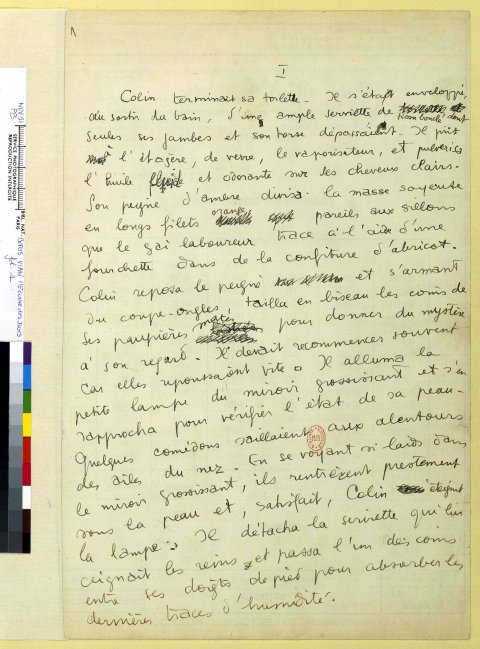 1
I
Colin terminait sa toilette. Il s'était enveloppé,
au sortir du bain, d'une ample serviette de tissu bouclé dont
seules ses jambes et son torse dépassaient. Il prit
à l'étagère, de verre, le vaporisateur, et pulvérisa
l'huile et odorante sur les cheveux clairs.
Son peigne d'ambre divisa la masse soyeuse
en longs filets orange pareils aux sillons
que le gai laboureur trace à l'aide d'une
fourchette dans de la confiture d'abricot.
Colin reposa le peigne et s'armant
du coupe-ongles, tailla en biseau les coins de
ses paupières mates, pour donner du mystère
à son regard. Il devait recommencer souvent
car elles repoussaient vite. Il alluma la
petite lampe du miroir grossissant et s'en
rapprocha pour vérifier l'état de sa peau.
Quelques comédons saillaient aux alentours
des ailes du nez. En se voyant si laids dans
le miroir grossissant, ils rentrèrent prestement
sous la peau et, satisfait, Colin éteignit
la lampe. Il détacha la serviette qui lui
ceignait les reins et passa l'un des coins
entre ses doigts de pied pour absorber les
dernières traces d'humidité.
SERVICE PHOTOGRAPHIQUE
REPRODUCTION INTERDITE
PARIS